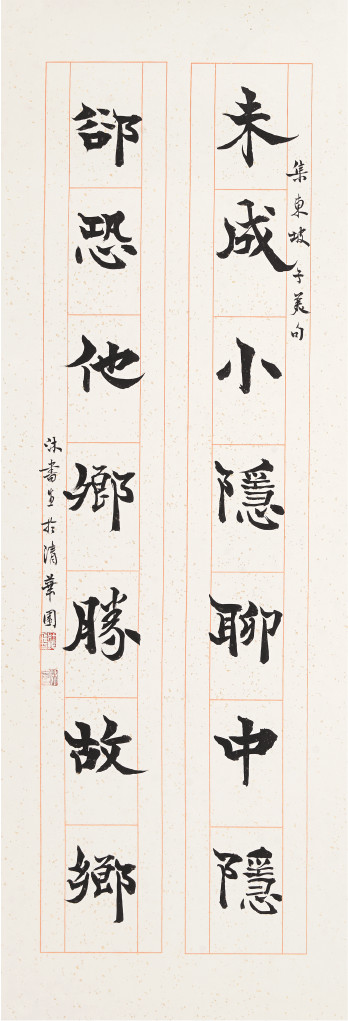 集東坡子美句
未成小隱聊中隱
郤恐他鄉勝故鄉
沐書並於清華園